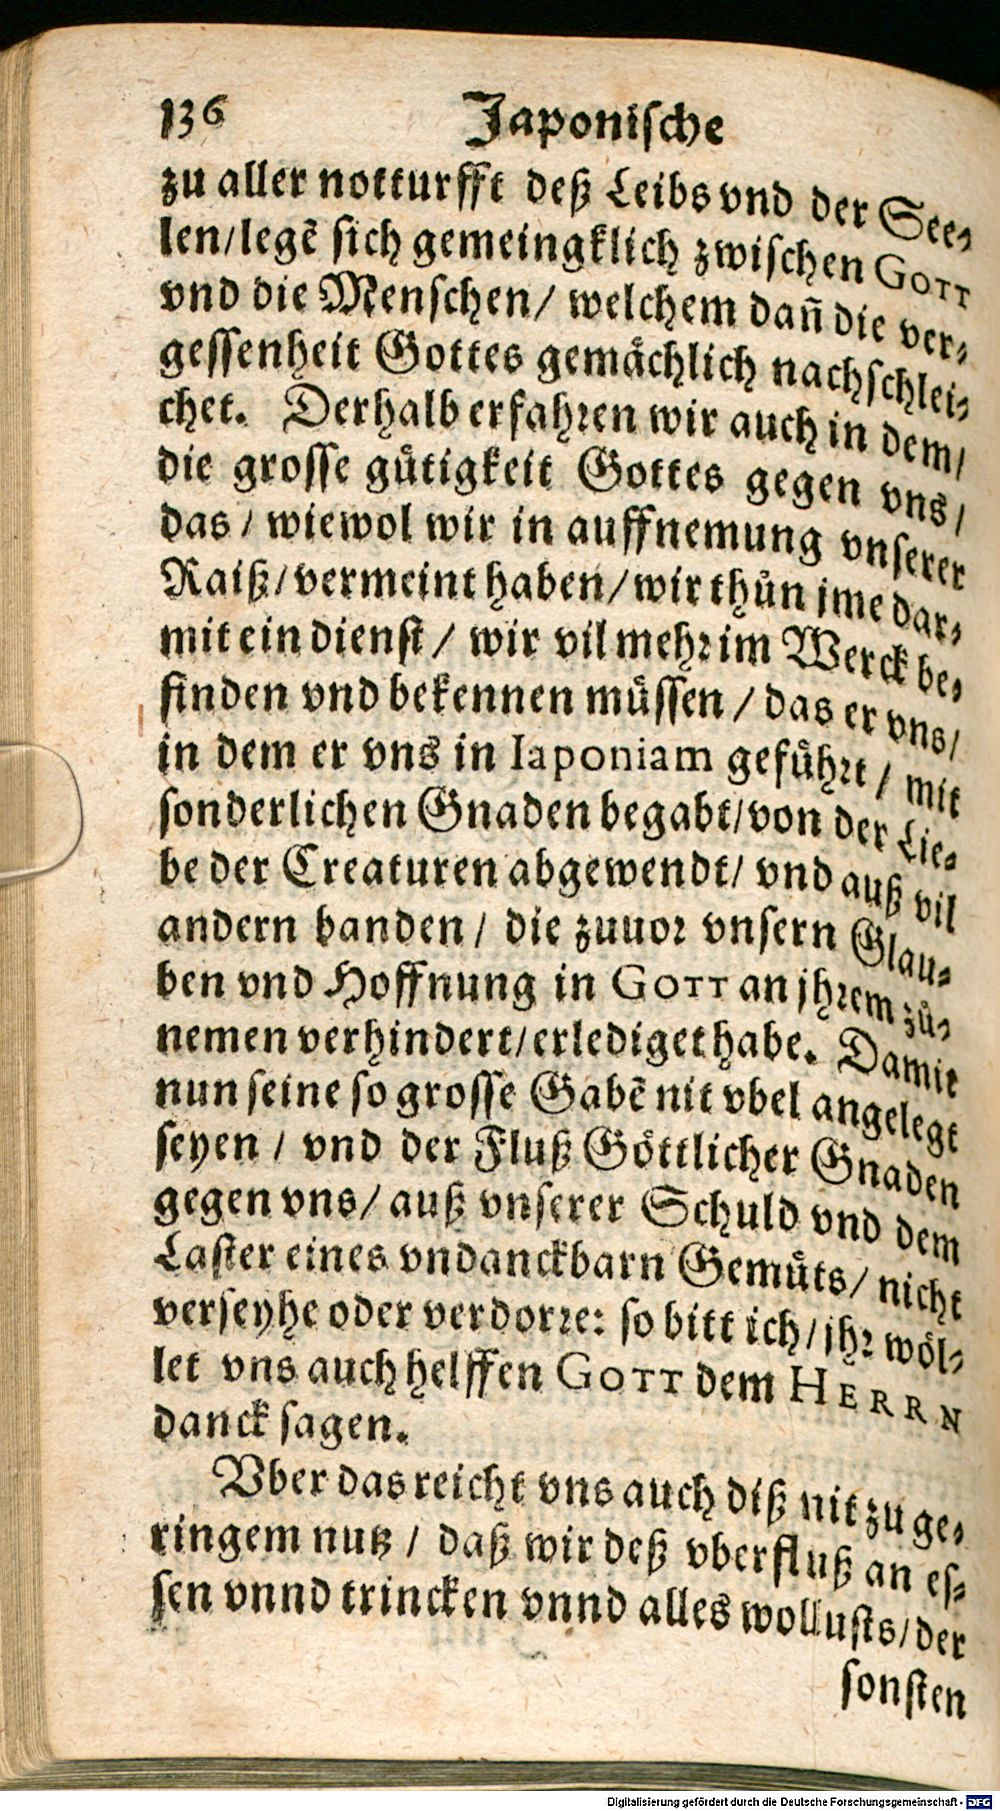 136 Japonische
zu aller notturfft deß Leibs vnd der See-
len/legẽ sich gemeingklich zwischen GOTT
vnd die Menschen/ welchem dañ die ver-
gessenheit Gottes gemaͤchlich nachschlei-
chet. Derhalb erfahren wir auch in dem/
die grosse guͤtigkeit Gottes gegen vns/
das / wiewol wir in auffnemung vnserer
Raiß/vermeint haben/wir thuͤn jme dar-
mit ein dienst / wir vil mehr im Werck be-
finden vnd bekennen muͤssen / das er vns/
in dem er vns in Iaponiam gefuͤhrt / mit
sonderlichen Gnaden begabt/von der Lie-
be der Creaturen abgewendt/ vnd auß vil
andern banden / die zuuor vnsern Glau-
ben vnd Hoffnung in GOTT an jhrem zuͤ-
nemen verhindert/erlediget habe. Damit
nun seine so grosse Gabẽ nit vbel angelegt
seyen / vnd der Fluß Goͤttlicher Gnaden
gegen vns/ auß vnserer Schuld vnd dem
Laster eines vndanckbarn Gemuͤts/ nicht
verseyhe oder verdorre: so bitt ich/jhr woͤl-
let vns auch helffen GOTT dem HERRN
danck sagen.
Vber das reicht vns auch diß nit zu ge-
ringem nutz / daß wir deß vberfluß an es-
sen vnnd trincken vnnd alles wollusts/der
sonsten
Digitalisierung gefördert durch die Deutsche Forschungsgemeinschaft - DFG